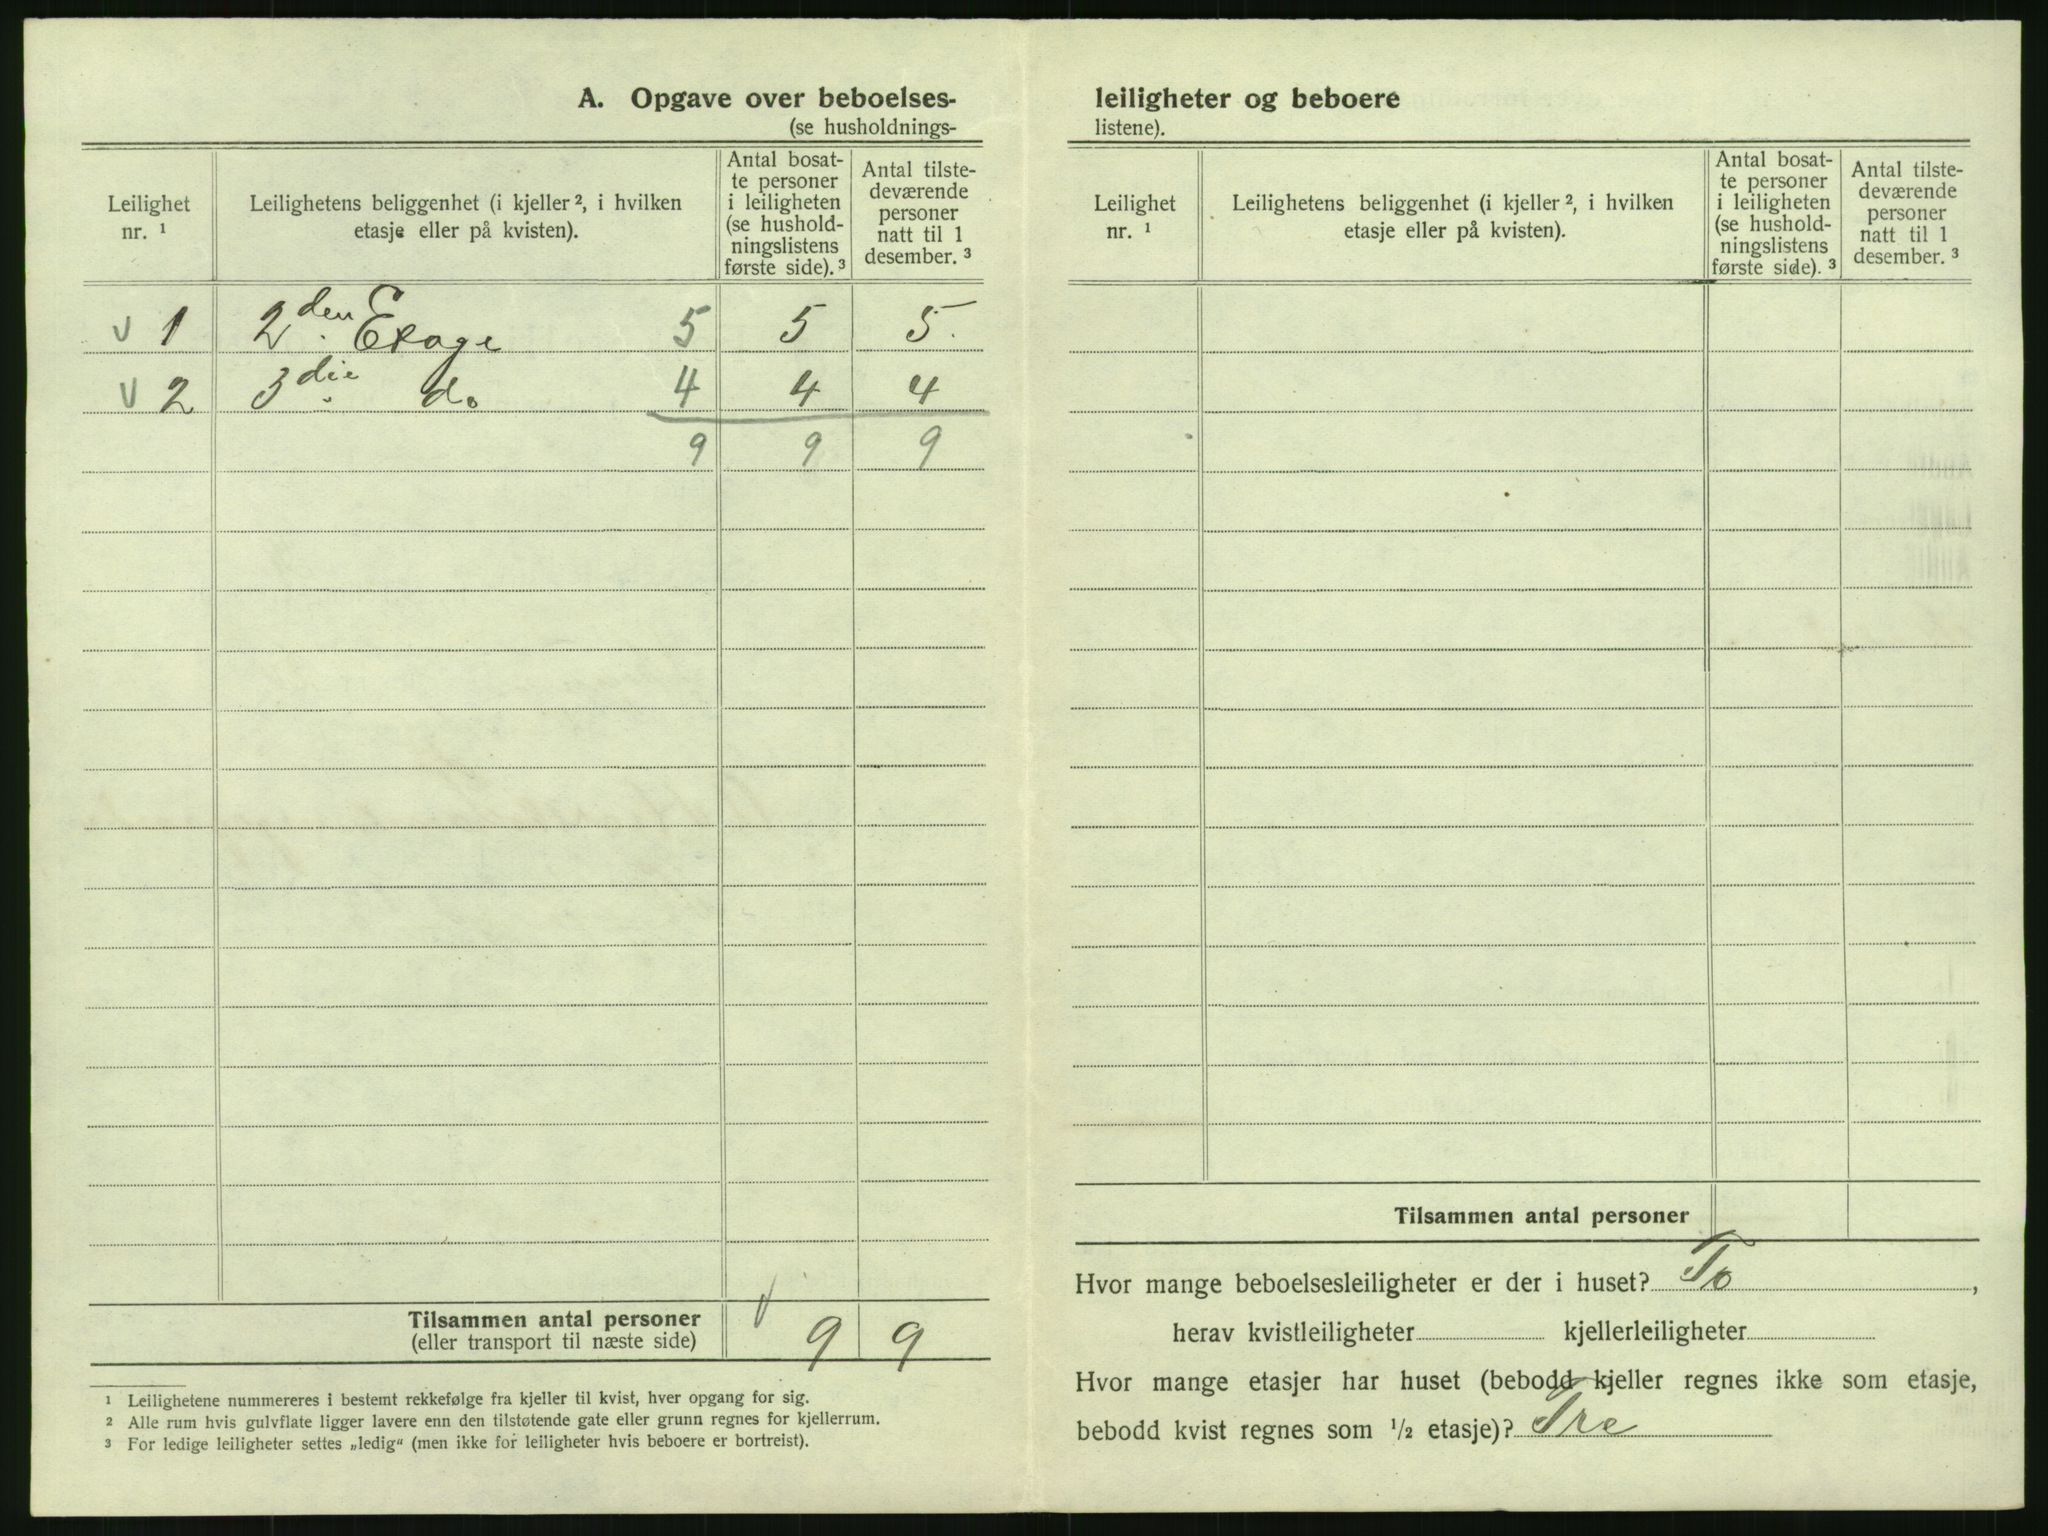 A. Opgave over beboelses-
(se husholdnings-
Leilighet nr. ¹
Leilighetens beliggenhet (i kjeller ², i hvilken etasje eller på kvisten).
Antal bosat-
te personer
i leiligheten
(se hushold-
ningslistens
første side). ³
Antal tilste-
deværende
personer
natt til 1
desember. ³
v 1 2den Etage 5 5 5.
v 2 3die do 4 4 4
9 9 9
Tilsammen antal personer
(eller transport til næste side) v 9 9
¹ Leilighetene nummereres i bestemt rekkefølge fra kjeller til kvist, hver opgang for sig.
² Alle rum hvis gulvflate ligger lavere enn den tilstøtende gate eller grunn regnes for kjellerrum.
³ For ledige leiligheter settes „ledig“ (men ikke for leiligheter hvis beboere er bortreist).
leiligheter og beboere
listene).
Leilighet nr. ¹
Leilighetens beliggenhet (i kjeller ², i hvilken etasje eller på kvisten).
Antal bosat-
te personer
i leiligheten
(se hushold-
ningslistens
første side). ³
Antal tilste-
deværende
personer
natt til 1
desember. ³
Tilsammen antal personer
Hvor mange beboelsesleiligheter er der i huset? To ,
herav kvistleiligheter kjellerleiligheter
Hvor mange etasjer har huset (bebodd kjeller regnes ikke som etasje,
bebodd kvist regnes som ½ etasje)? Tre